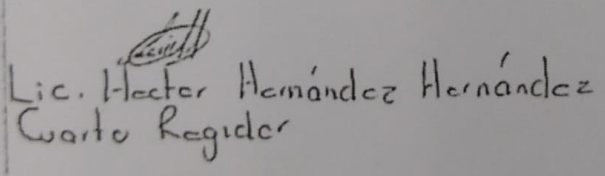 Lic. Hector Hernández Hernández
Cuarto Regidor